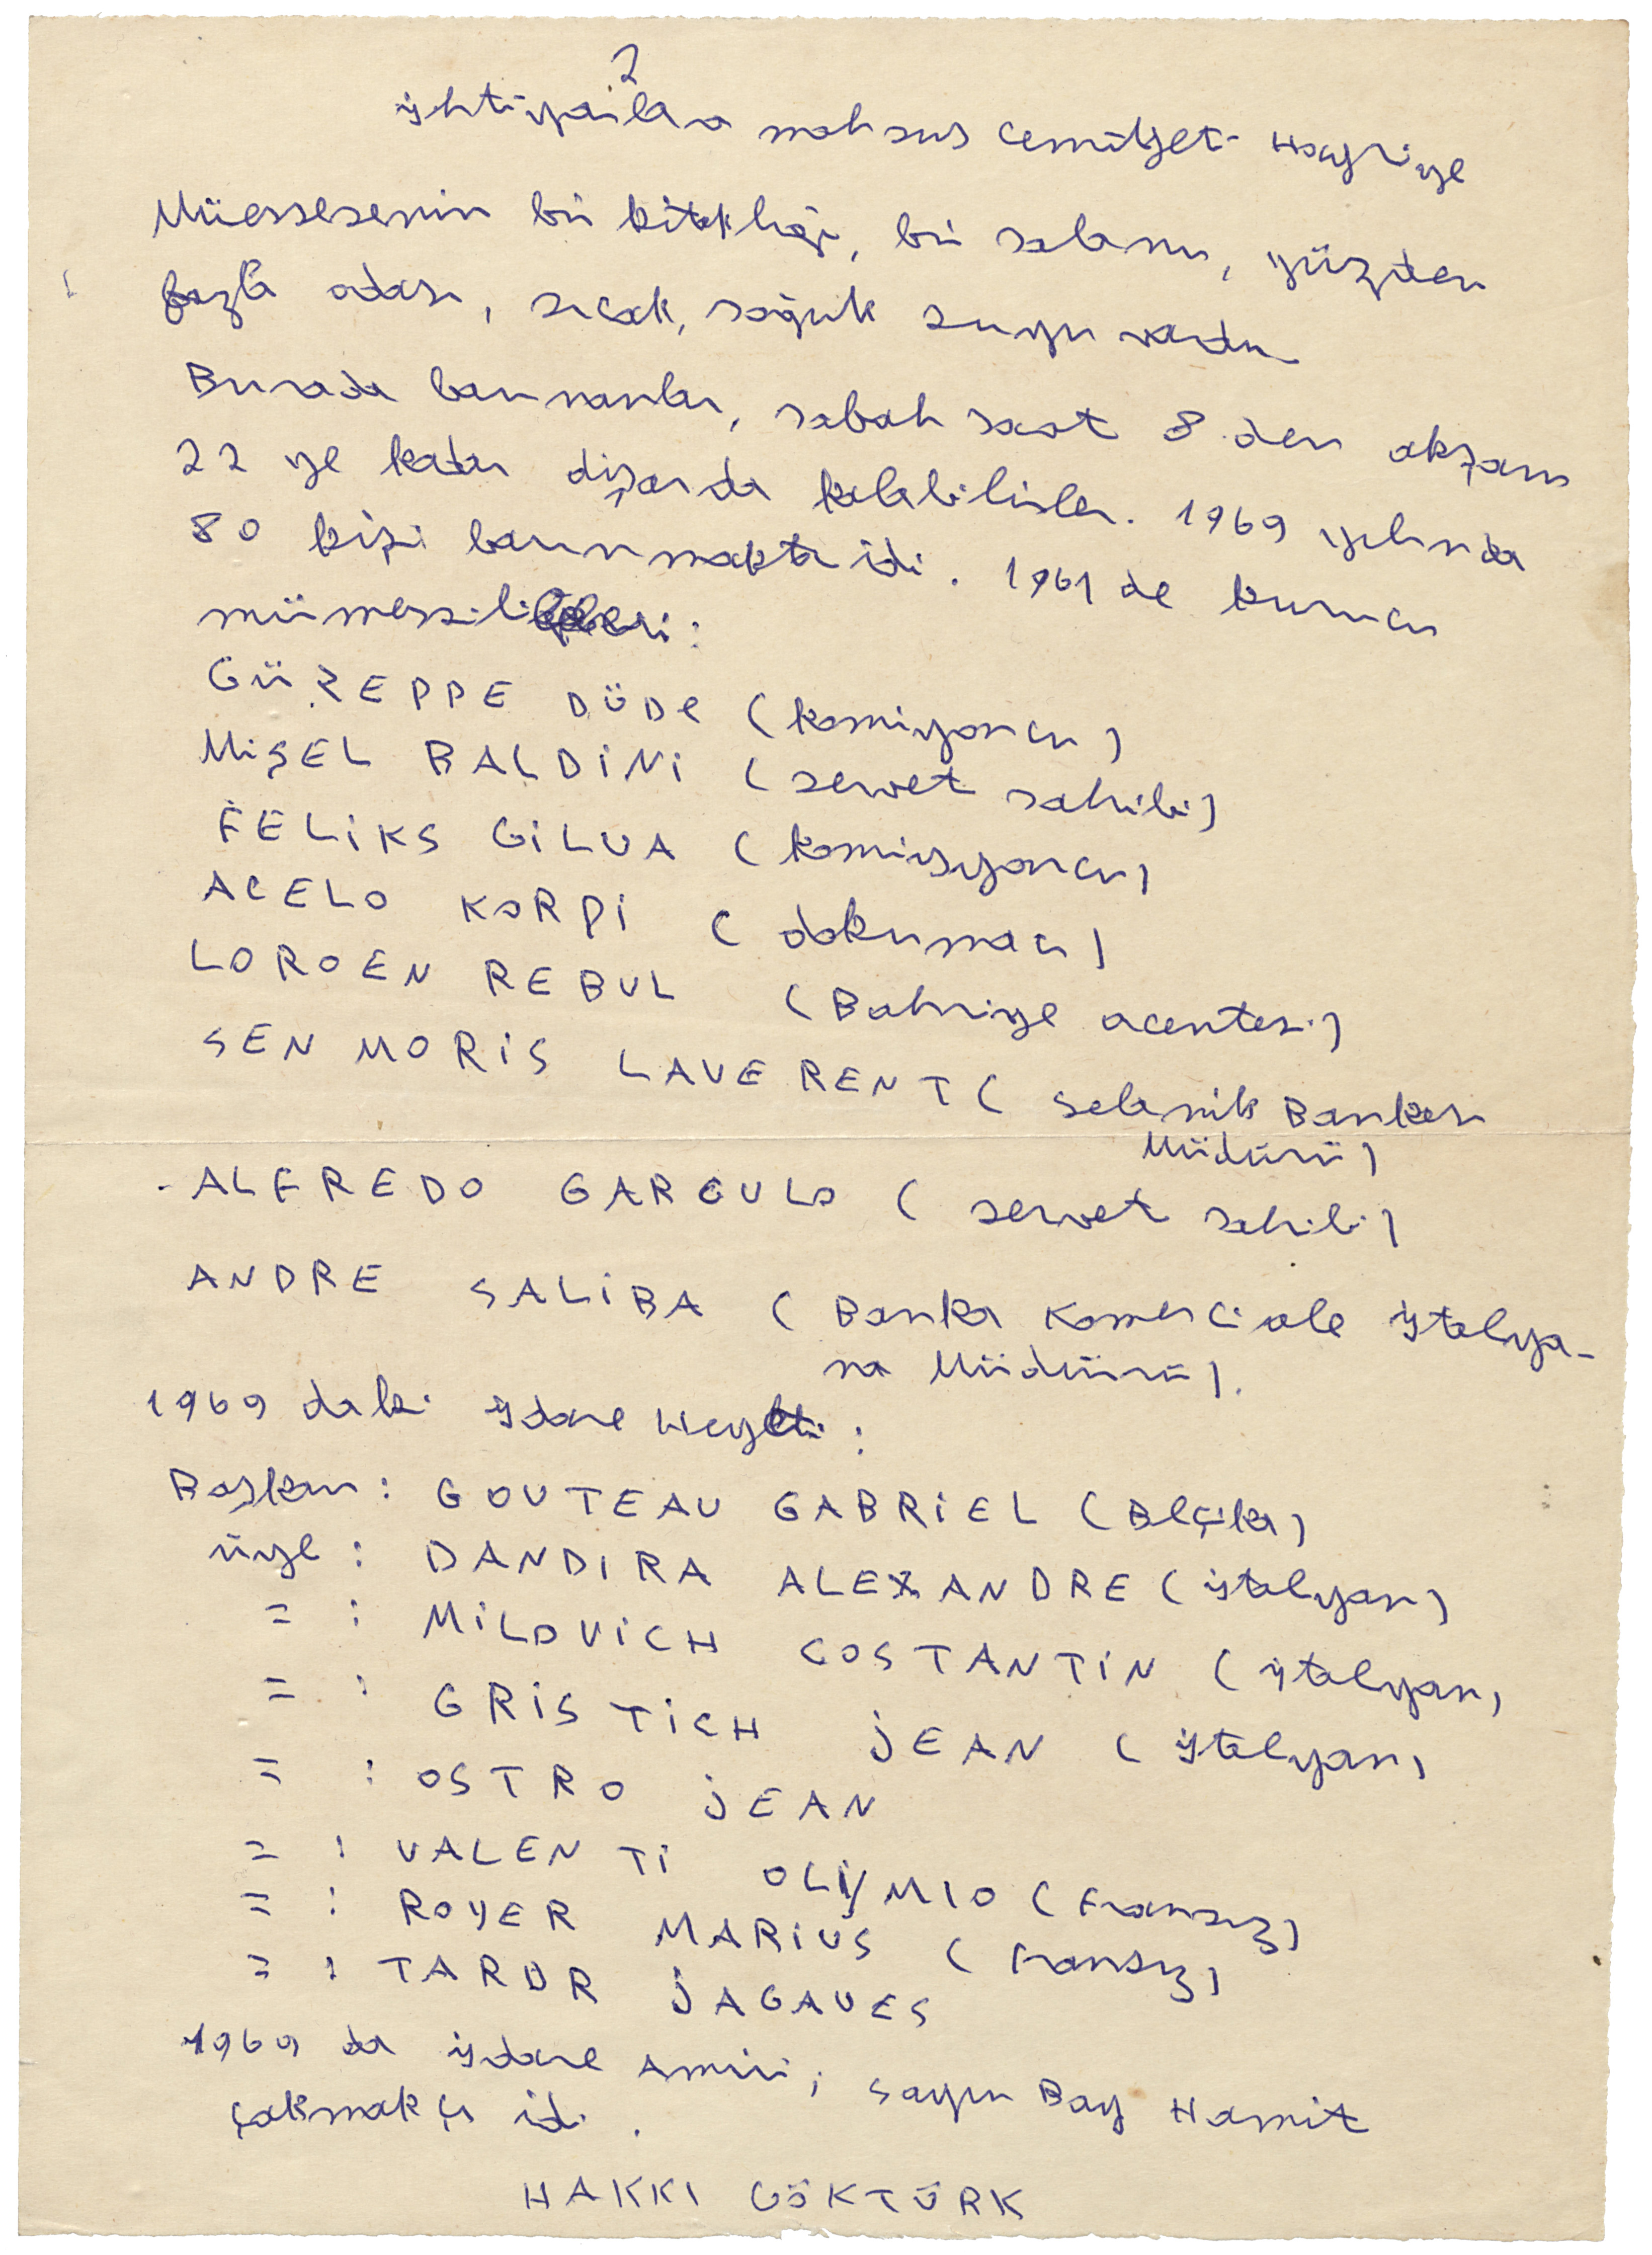 2
İhtiyaçlara mahsus Cemiiyeti Hayriye
Müessesenin bir kitaklığı, bir salonu, yüzden
fazla odası, sıcak, soğuk suyu vardır
Burada barınanlar, sabah saat 8 den akşam
22 ye kadar dışarda kalabilirler. 1969 yılında
80 kişi barınmakta idi. 1961 de kurucu
mümessilleri:
GÜZEPPE DÜDE (komiyoncu)
MİŞEL BALDİNİ (servet sahibi)
FELİKS GİLVA (komisyoncu)
ACELO KORPİ (dokumacı)
LOROEN REBUL (Bahriye acentesi)
SEN MORİS LAVERENT (Selanik Bankası
Müdürü)
- ALFREDO GARGULO (servet sahibi)
ANDRE SALİBA (Banka Komerciale İtalya-
na Müdürü).
1969 daki İdare Heyeti:
Başkan: GOUTEAU GABRİEL (Belçika)
üye : DANDIRA ALEXANDRE (İtalyan)
= : MİLOVİCH COSTANTİN (İtalyan)
= : GRİSTİCH JEAN (İtalyan)
= : OSTRO JEAN
= : VALENTİ OLİYMIO (Fransız)
= : ROYER MARİUS (Fransız)
= : TARDR JAGAUES
1969 da İdare Amiri; Sayın Bay Hamit
Çakmakçı idi.
HAKKI GÖKTÜRK